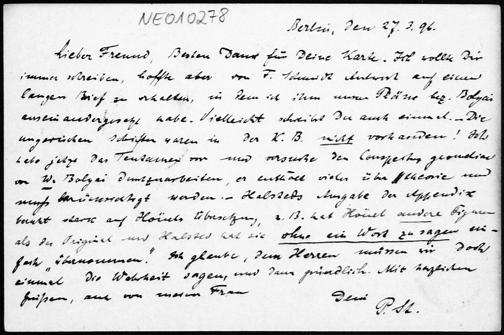 NE010278
Berlin, den 27.3.96.
Lieber Freund, Besten Dank für Deine Karte. Ich wollte Dir
immer schreiben, hoffte aber von F. Schmidt Antwort auf einen
langen Brief zu erhalten, in dem ich ihm unsere Pläne bez. Bolyai
auseinandergesetzt habe. Vielleicht schreibst Du auch einmal. – Die
ungarischen Schriften waren in der K. B. nicht vorhanden! Ich
nehme jetzt das Tentamen vor und versuche den Conspectus geometriae
von W. Bolyai durchzuarbeiten, er enthält vieles über theorie und
muss berücksichtigt werden. – Halsteds Ausgabe der Appendix
beruht stark auf Hoüels Übersetzung, z. B. hat Hoüel andere Figuren
als das Original und Halsted hat sie ohne ein Wort zu sagen ein-
fach "übernommen"! Ich glaube, dem Herren müssen wir doch
einmal die Wahrheit sagen, und dann gründlich. Mit herzlichen
Grüßen, auch von meiner Frau
Dein
P. St.